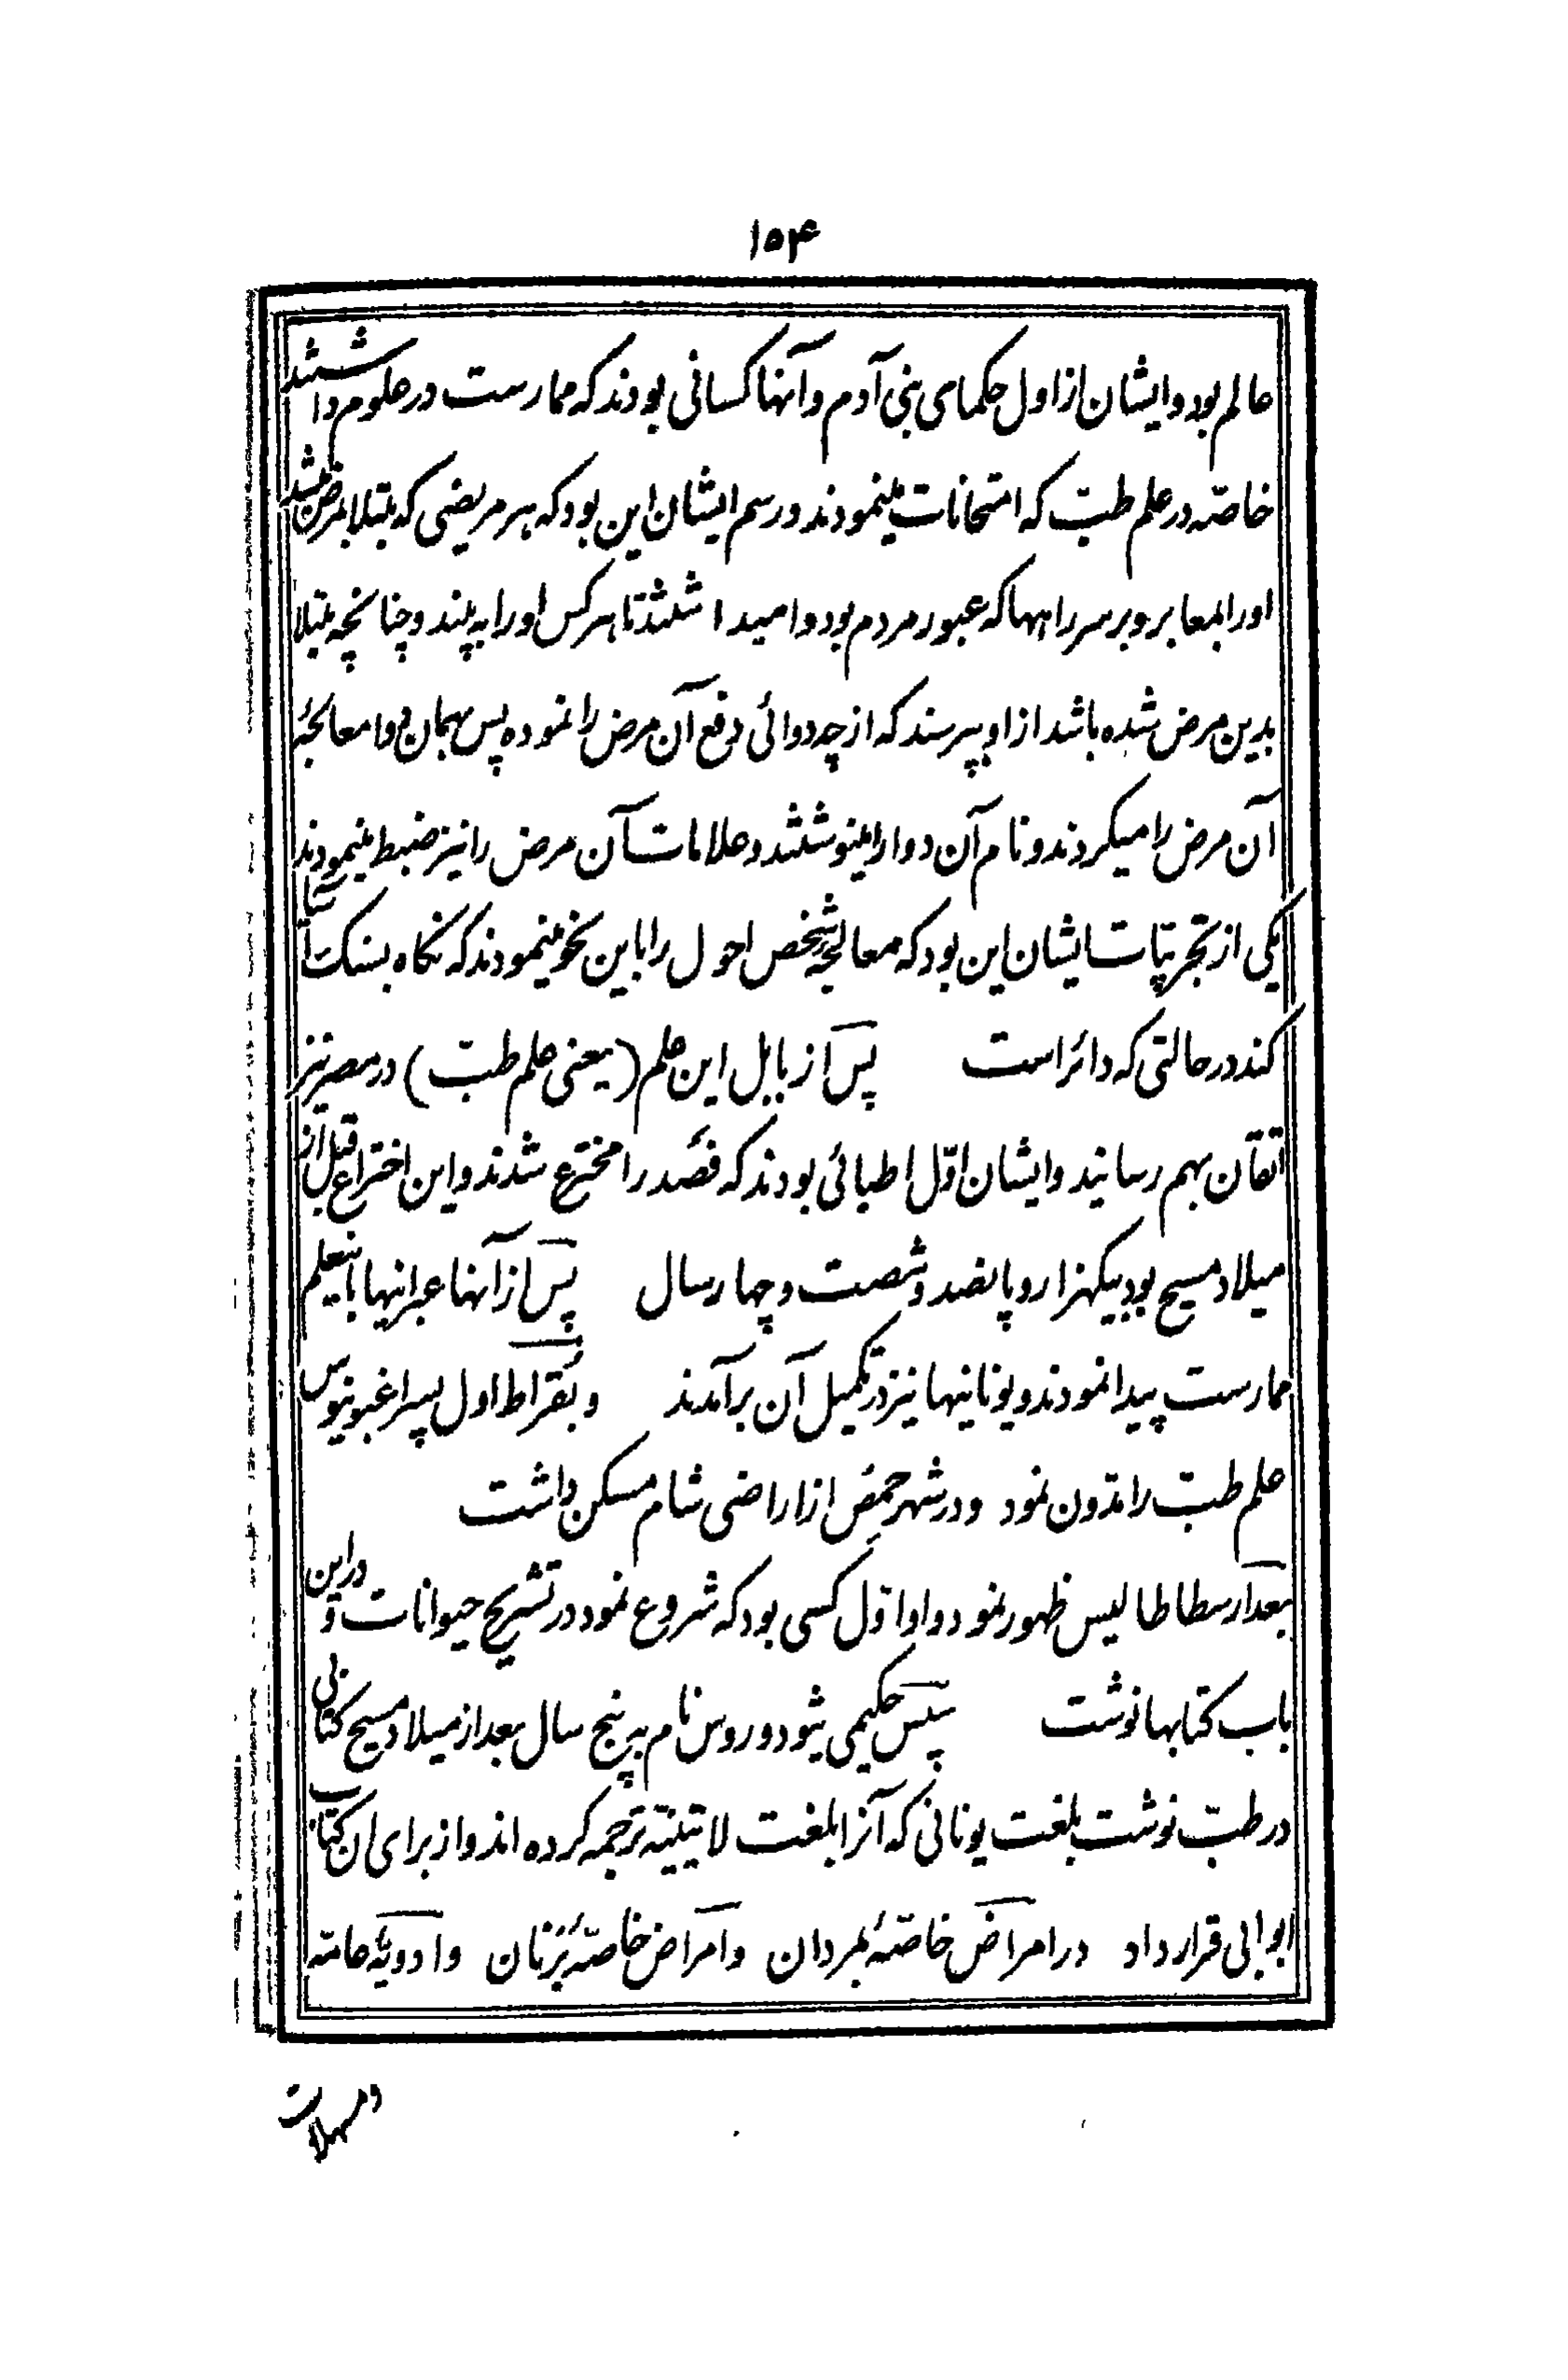 ۱۵۴
عالم بود و ایشان از اول حکمای بنی آدم و آنها کسانی بودند که ممارست در علوم داشتند
خاصّه در علم طبّ که امتحانات مینمودند و رسم ایشان این بود که هر مریضی که مبتلا بمرض میشد
او را بمعابر و بر سر راهها که عبور مردم بود وامیداشتند تا هر کس او را به بیند و چنانچه مبتلا
بدین مرض شده باشد از او بپرسند که از چه دوائی دفع آن مرض را نموده پس بهمان دوا معالجۀ
آن مرض را میکردند و نام آن دوا را مینوشتند و علامات آن مرض را نیز ضبط مینمودند
یکی از تجربیّات ایشان این بود که معالجۀ شخص احول را باین نحو مینمودند که نگاه بسنک آسیا
کند در حالتی که دائر است پس از بابل این علم (یعنی علم طبّ) در مصر نیز
اتقان بهم رسانید و ایشان اوّل اطبائی بودند که فصد را مخترع شدند و این اختراع قبل از
میلاد مسیح بود بیکهزار و پانصد و شصت و چهار سال پس از آنها عبرانیها باینعلم
ممارست پیدا نمودند و یونانیها نیز در تکمیل آن برآمدند و بقراط اول پسر اغبونیوس
علم طبّ را مدّون نمود و در شهر حمص از اراضی شام مسکن داشت
بعد ارسطاطالیس ظهور نمود و او اوّل کسی بود که شروع نمود در تشریح حیوانات و در این
باب کتابها نوشت سپس حکیمی ثیودوروس نام به پنج سال بعد از میلاد مسیح کتابی
در طبّ نوشت بلغت یونانی که آنرا بلغت لاتینیّه ترجمه کرده اند و از برای ان کتاب
ابوابی قرار داد در امراض خاصّۀ بمردان و امراض خاصّۀ بزنان و ادویۀ عامّه
و مسهلات